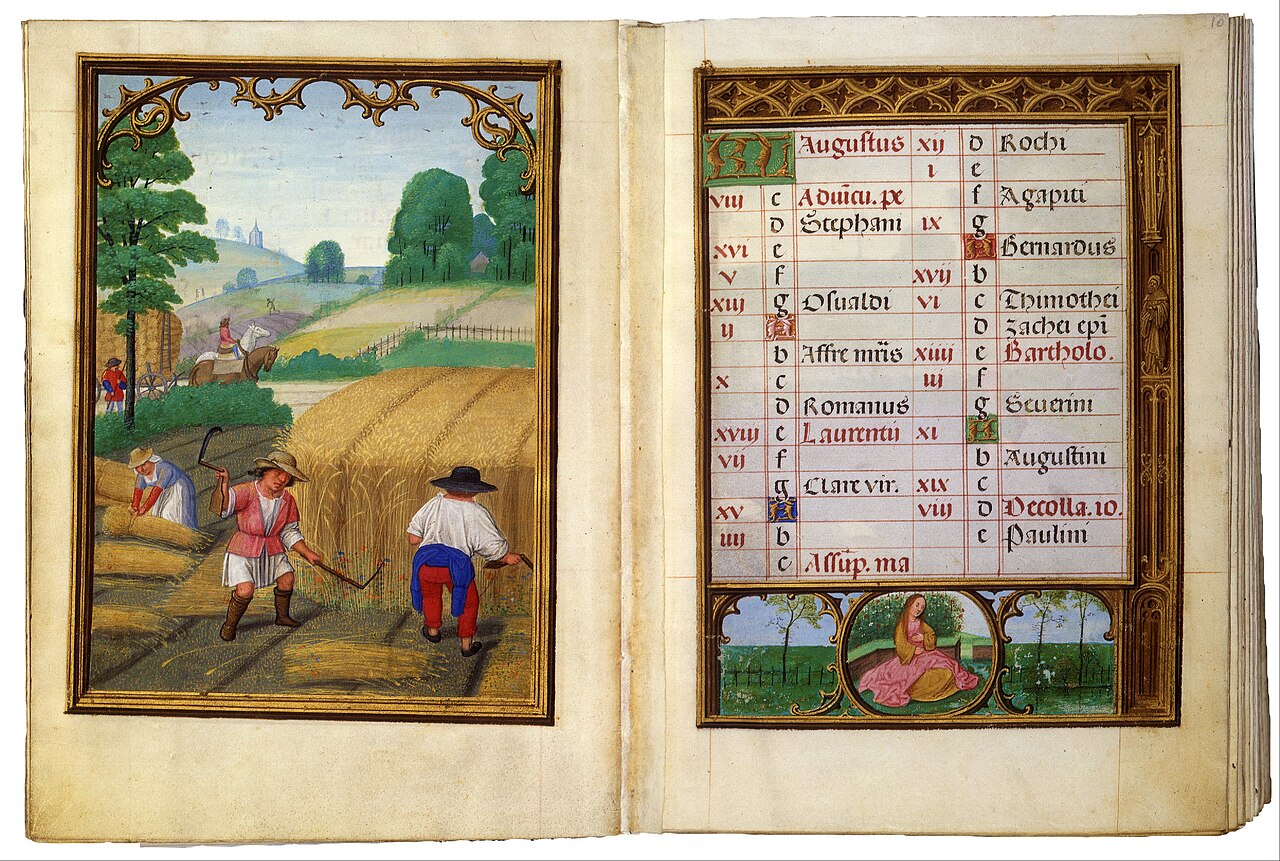 KL Augustus
viij c Aduīcu. pe
d Stephani
xvi e
v f
xiij g Osualdi
ij A
b Affre mr̄is
x c
d Romanus
xviij e Laurentij
vij f
g Clare vir.
xv A
iiij b
c Assūp. ma
xij d Rochi
i e
f Agapiti
ix g
A Bernardus
xvij b
vi c Thimothei
d Zachei epī
xiiij e Bartholo.
iij f
g Seuerini
xi A
b Augustini
xix c
viij d Decolla. io.
e Paulini
10